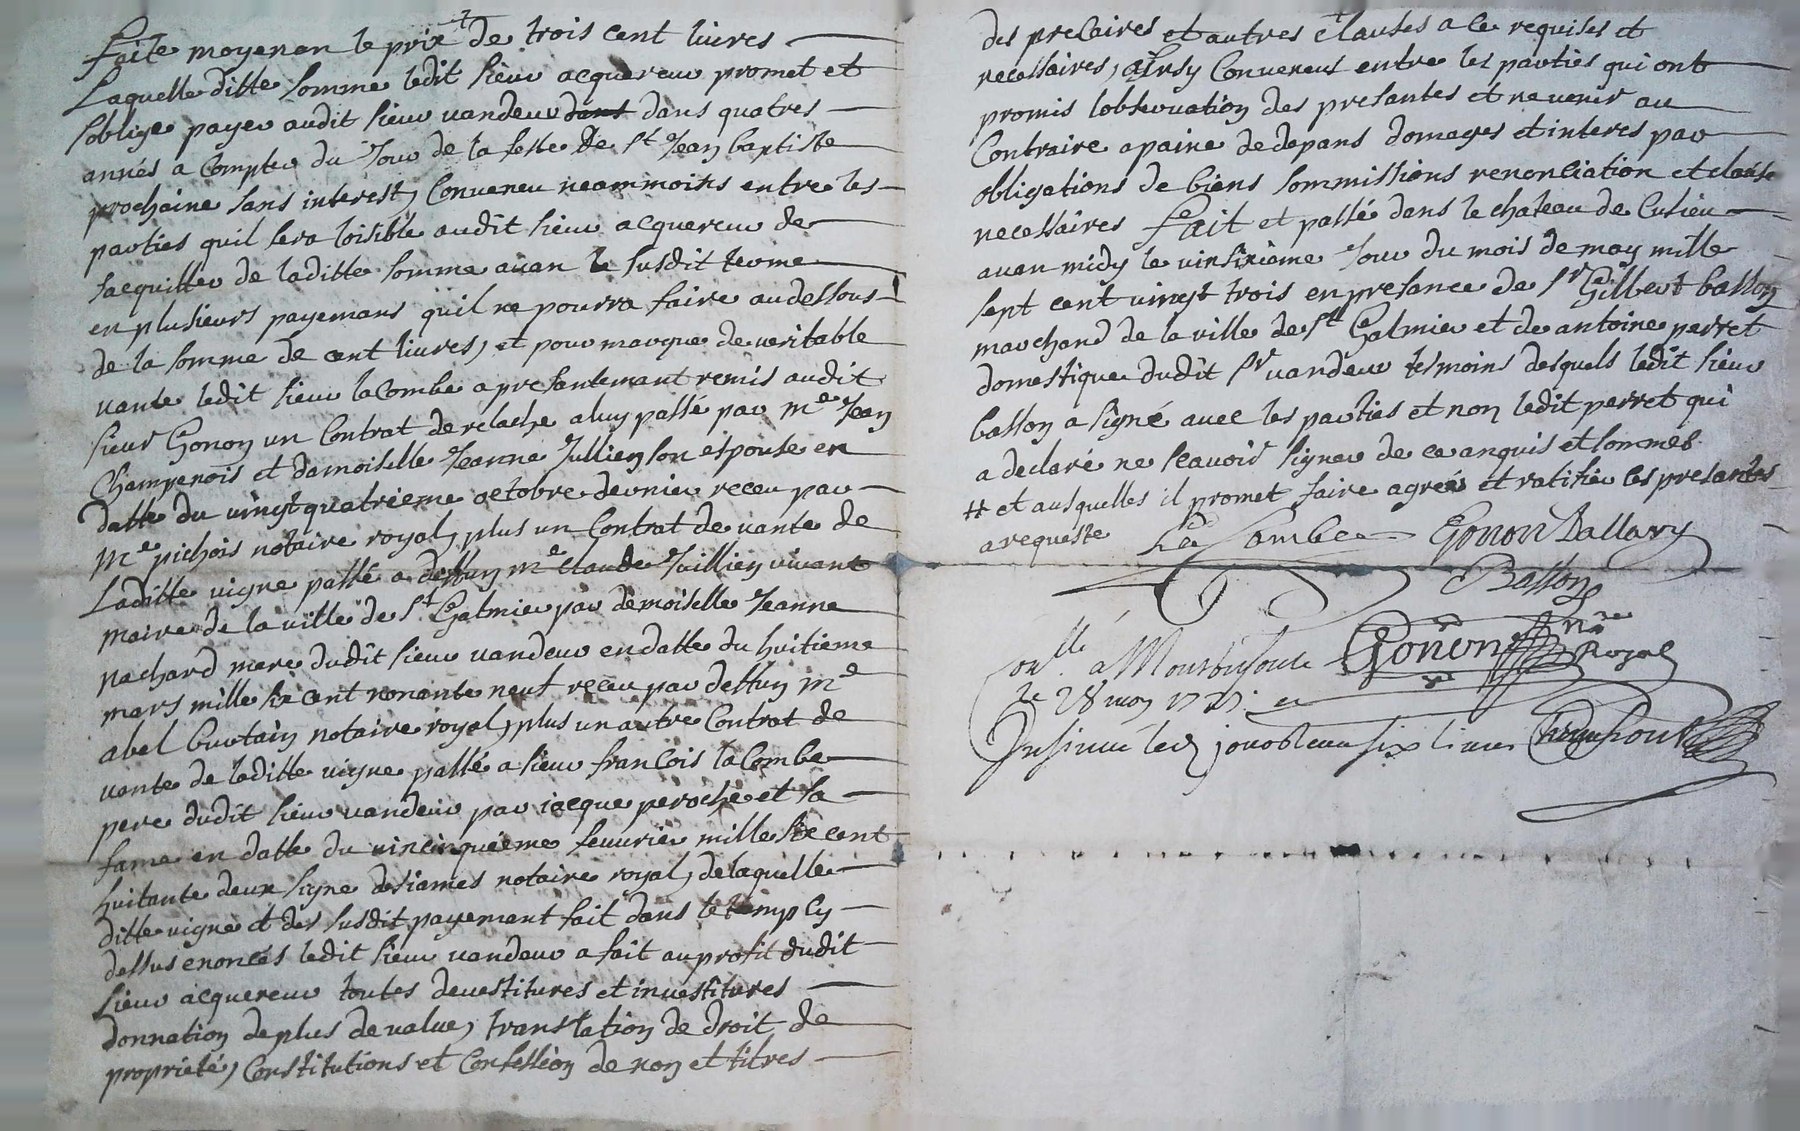 faite moyenan le prix de trois cent livres
Laquelle ditte somme ledit sieur acquereur promet et
soblige payer audit sieur vandeur dans dans quatres
annés a compter du Jour de la feste de st Jean baptiste
prochaine sans interest, Conveneu neammoins entre les
parties quil sera loisible audit sieur acquereur de
sacquitter de laditte somme avan le susdit terme
en plusieurs payemans quil ne pourra faire audessous
de la somme de cent livres, et pour marque de veritable
vante ledit sieur laCombe a presantemant remis audit
sieur Gonon un Contrat de relache a luy passé par me Jean
Champenois et damoiselle Jeanne Jullien son espouse en
datte du vingtquatrieme octobre dernier receu par
Me pichois notaire royal, plus un Contrat de vante de
Laditte vigne passé a deffun me Claude Juillien vivant
maire de la ville de st Galmier par demoiselle Jeanne
pachard mere dudit sieur vandeur en datte du huitieme
mars mille six cent nonante neuf receu par deffun me
abel Curtain notaire royal, plus un autre Contrat de
vante de laditte vigne passé a sieur francois laCombe
pere dudit sieur vandeur par jacque peroche et sa
fame en datte du vincinquieme fevrier mille six cent
huitante deux signe desiames notaire royal, de laquelle
ditte vigne et des susdit payemant fait dans le temp cy
dessus enoncés ledit sieur vandeur a fait au profit dudit
sieur acquereur toutes devestitures et investitures
donnation de plus de value, translation de droit de
propriété, Constitutions et Confession de non et titres
des precaires et autres Clauses a ce requises et
necessaires, ainsy Conveneus entre les parties qui ont
promis lobservation des presantes et ne venir au
Contraire a paine de depans domages et interes par
obligations de biens sommissions renonciation et clause
necessaires fait et passé dans le chateau de Cusieu
avan midy le vinsixième Jour du mois de may mille
sept cent vingt trois en presance de sr Gilbert basson
marchand de la ville de st Galmier et de antoine perret
domestique dudit sr vandeur tesmoins desquels ledit sieur
basson a signé avec les parties et non ledit perret qui
a declaré ne scavoir signer de ce anquis et sommes
# et ausquelles il promet faire agréé et ratifier les presantes
a requeste La Combe Gonon Dallary
Basson
Conlle a Montbrison Gonon nre Royal
le 28 may 1723
Insinué led jour